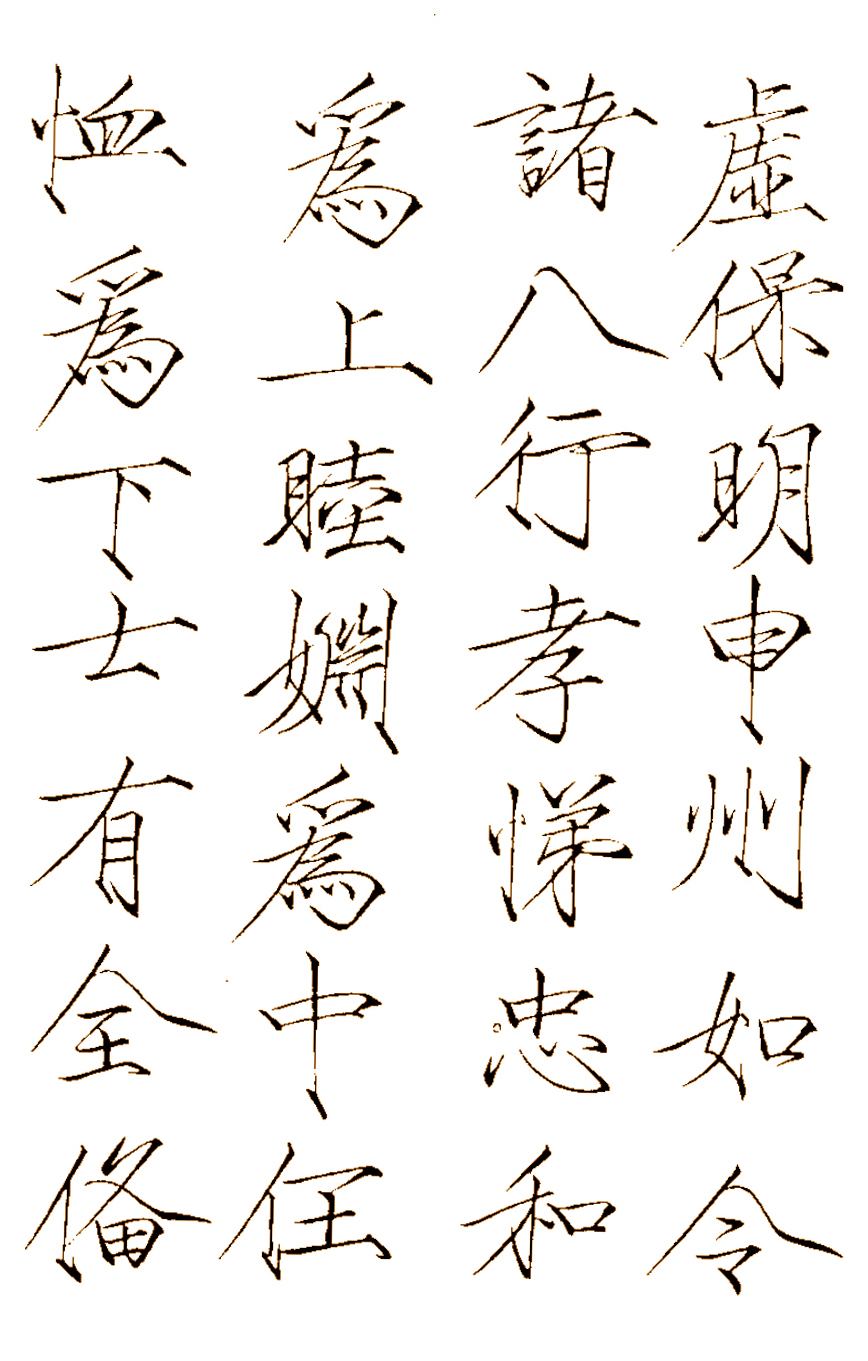 虛保明申州如令
諸八行孝悌忠和
為上睦婣為中任
恤為下士有全俻